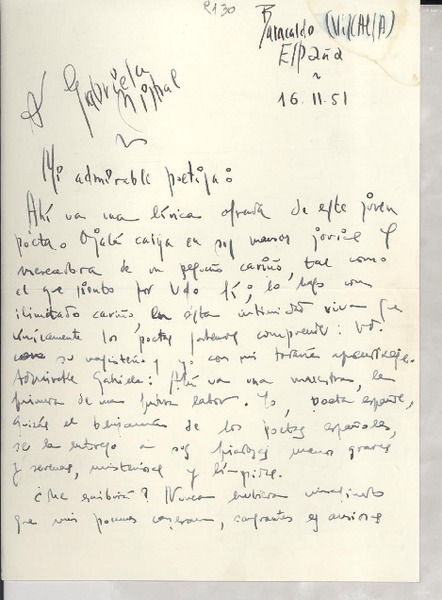 2130
Baracaldo (Vizcaya)
España
16.II.51
A Gabriela
Mistral
Mi admirable poetisa:
Ahí va una lírica ofrenda de este joven
poeta. Ojalá caiga en sus manos jovial y
merecedora de un pequeño cariño, tal como
el que siento por Vd. Sí; lo hago con
ilimitado cariño, en esta intimidad viva que
únicamente los poetas sabemos comprender: Vd.
con su magisterio y yo con mi todavía aprendizaje.
Admirable Gabriela: Ahí va una muestra, la
primera de una futura labor. Yo, poeta español,
quizás el benjamín de los poetas españoles,
se la entrego a sus piadosas manos graves
y serenas, misteriosas y limpias.
¿Me escribirá? Nunca hubiera imaginado
que mis poemas cayeran, en sus ansiosas